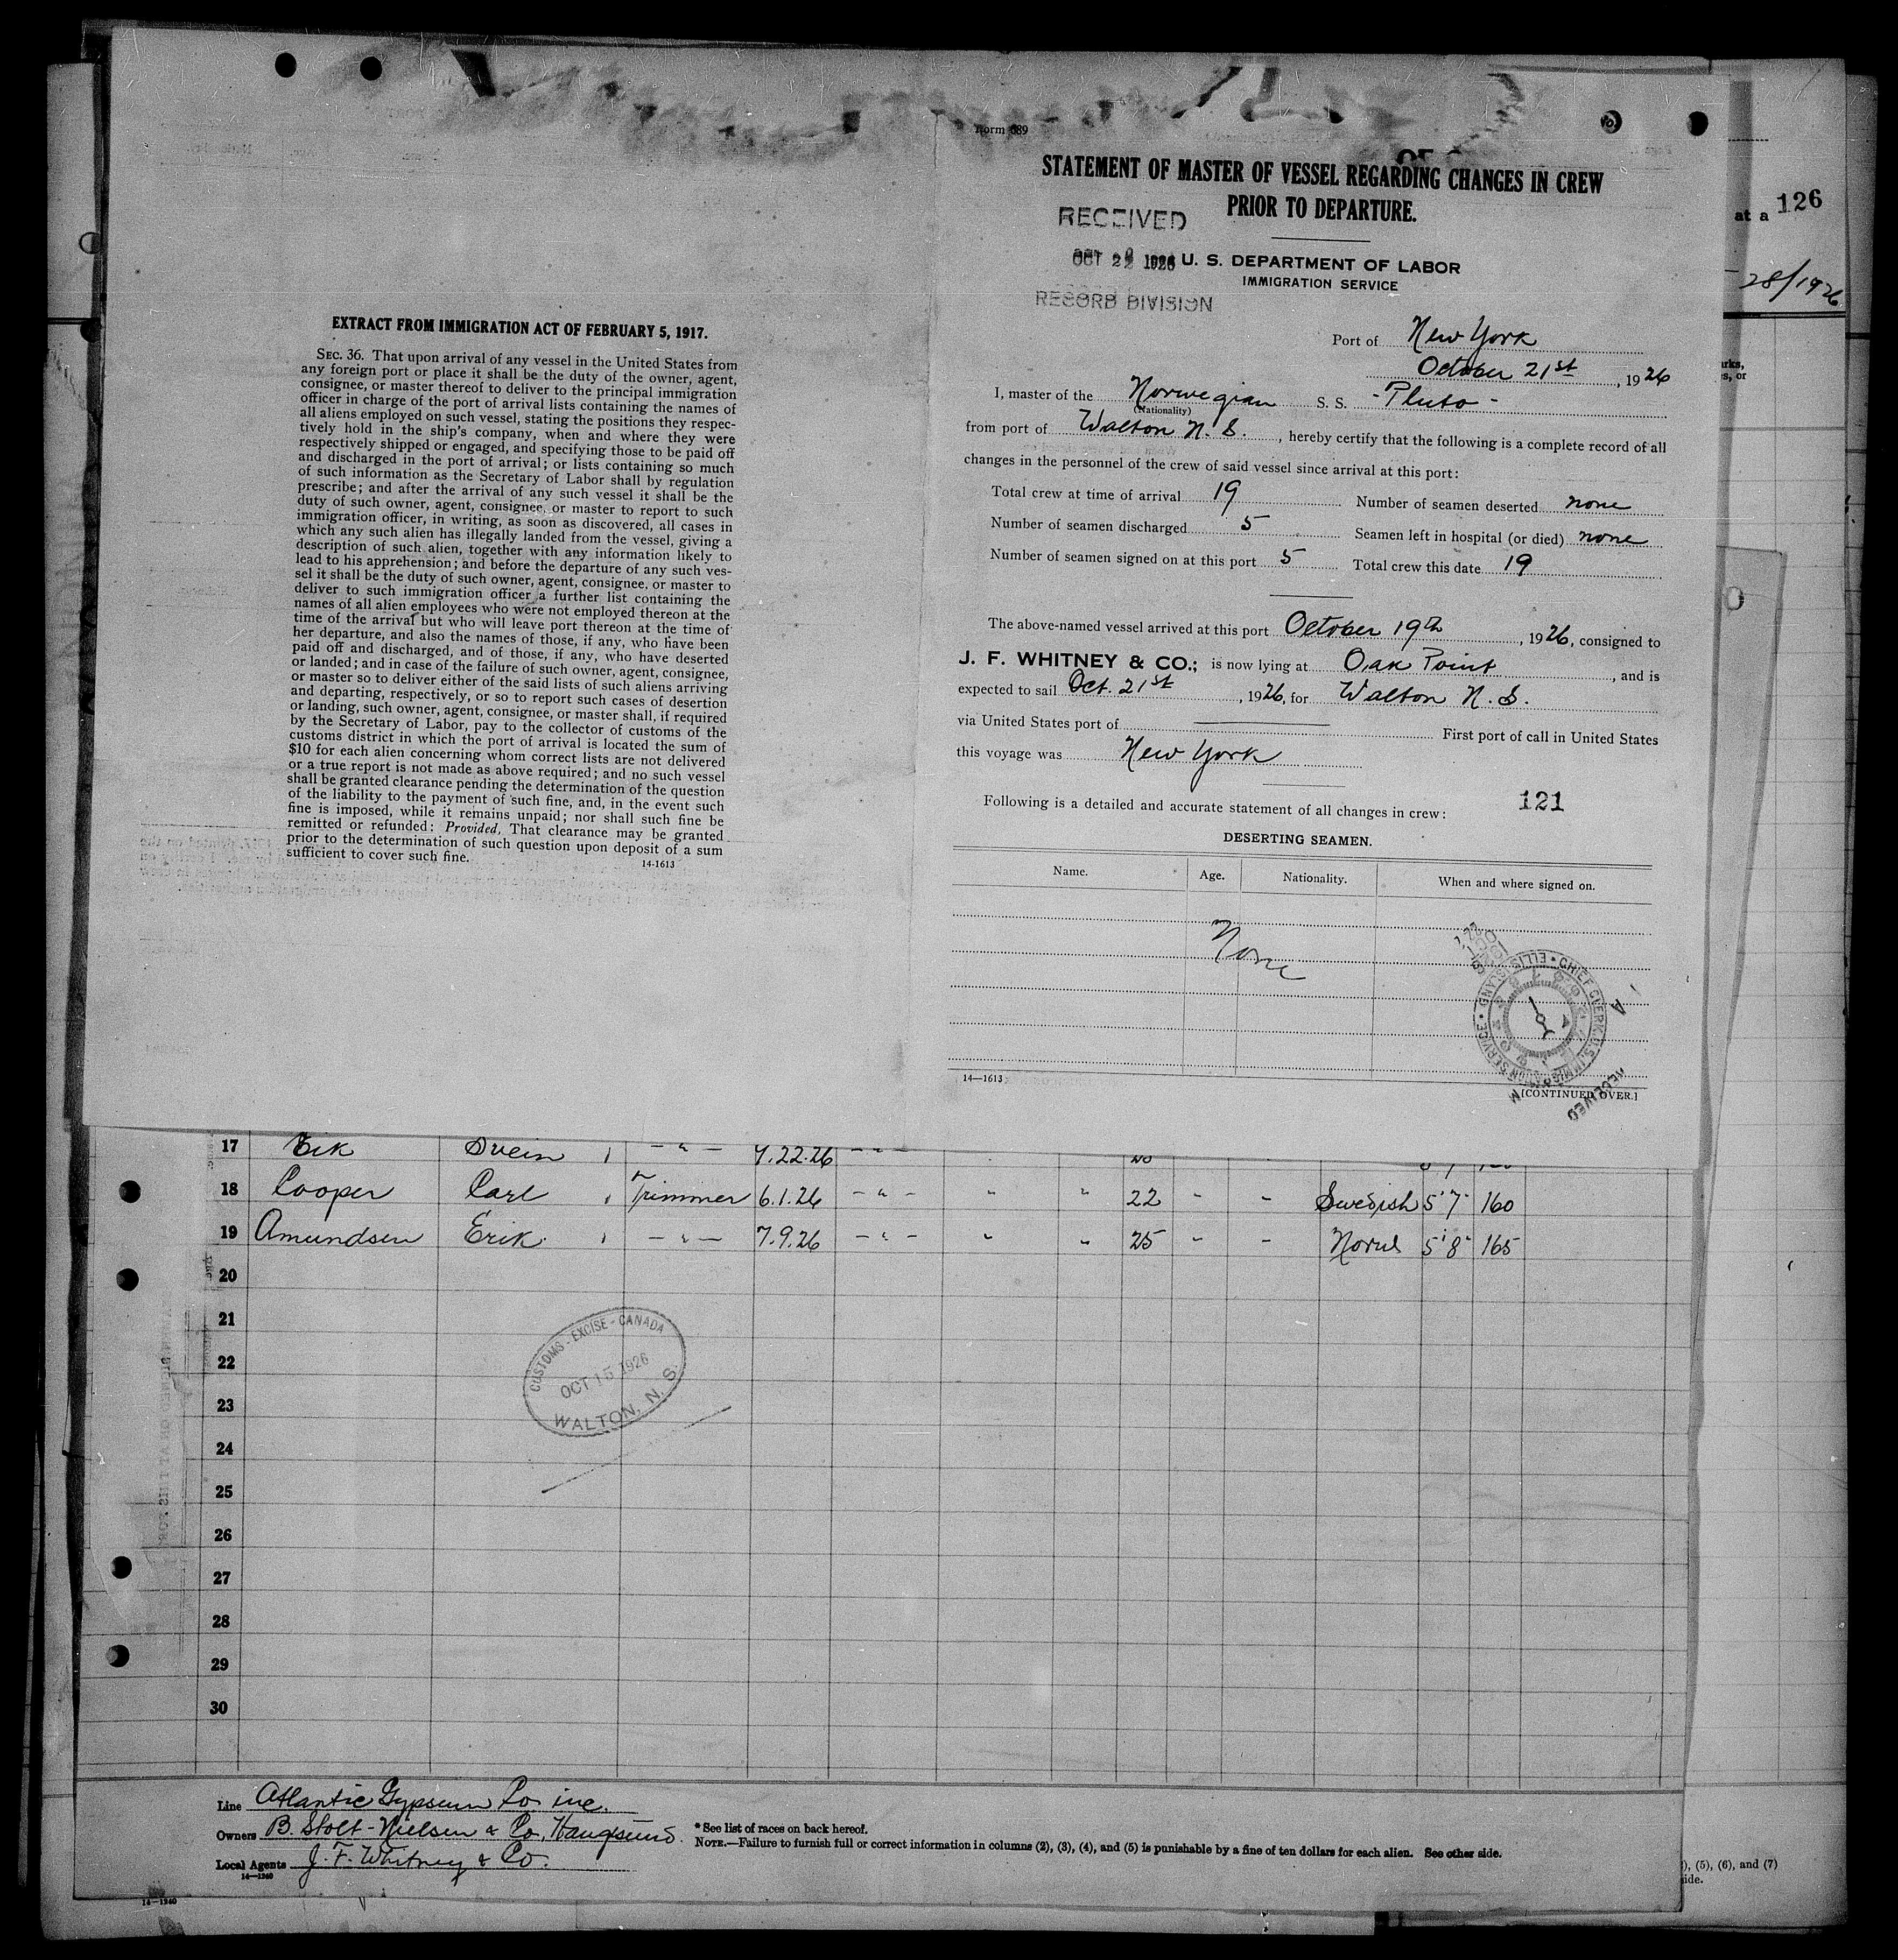 Form 689
STATEMENT OF MASTER OF VESSEL REGARDING CHANGES IN CREW
PRIOR TO DEPARTURE.
RECEIVED
OCT 22 1926
RECORD DIVISION
U. S. DEPARTMENT OF LABOR
IMMIGRATION SERVICE
Port of New York
October 21st, 1926
I, master of the Norwegian S. S. - Pluto -
(Nationality)
from port of Walton N. S., hereby certify that the following is a complete record of all
changes in the personnel of the crew of said vessel since arrival at this port:
Total crew at time of arrival 19 Number of seamen deserted none
Number of seamen discharged 5 Seamen left in hospital (or died) none
Number of seamen signed on at this port 5 Total crew this date 19
The above-named vessel arrived at this port October 19th, 1926, consigned to
J. F. WHITNEY & CO.; is now lying at Oak Point, and is
expected to sail Oct. 21st, 1926, for Walton N. S.
via United States port of First port of call in United States
this voyage was New York
Following is a detailed and accurate statement of all changes in crew: 121
DESERTING SEAMEN.
Name. Age. Nationality. When and where signed on.
None
CHIEF CLERK U.S. IMMIGRATION SERVICE • ELLIS ISLAND •
RECEIVED
14—1613
[CONTINUED OVER.]
EXTRACT FROM IMMIGRATION ACT OF FEBRUARY 5, 1917.
SEC. 36. That upon arrival of any vessel in the United States from
any foreign port or place it shall be the duty of the owner, agent,
consignee, or master thereof to deliver to the principal immigration
officer in charge of the port of arrival lists containing the names of
all aliens employed on such vessel, stating the positions they respec-
tively hold in the ship's company, when and where they were
respectively shipped or engaged, and specifying those to be paid off
and discharged in the port of arrival; or lists containing so much
of such information as the Secretary of Labor shall by regulation
prescribe; and after the arrival of any such vessel it shall be the
duty of such owner, agent, consignee, or master to report to such
immigration officer, in writing, as soon as discovered, all cases in
which any such alien has illegally landed from the vessel, giving a
description of such alien, together with any information likely to
lead to his apprehension; and before the departure of any such ves-
sel it shall be the duty of such owner, agent, consignee, or master to
deliver to such immigration officer a further list containing the
names of all alien employees who were not employed thereon at the
time of the arrival but who will leave port thereon at the time of
her departure, and also the names of those, if any, who have been
paid off and discharged, and of those, if any, who have deserted
or landed; and in case of the failure of such owner, agent, consignee,
or master so to deliver either of the said lists of such aliens arriving
and departing, respectively, or so to report such cases of desertion
or landing, such owner, agent, consignee, or master shall, if required
by the Secretary of Labor, pay to the collector of customs of the
customs district in which the port of arrival is located the sum of
$10 for each alien concerning whom correct lists are not delivered
or a true report is not made as above required; and no such vessel
shall be granted clearance pending the determination of the question
of the liability to the payment of such fine, and, in the event such
fine is imposed, while it remains unpaid; nor shall such fine be
remitted or refunded: Provided, That clearance may be granted
prior to the determination of such question upon deposit of a sum
sufficient to cover such fine.
14-1613
at a 126
28/1926
17 Eik Svein - " - 7.22.26 - " -
18 Cooper Carl Trimmer 6.1.26 - " - " " 22 " " Swedish 5'7" 160
19 Amundsen Erik - " - 7.9.26 - " - " " 25 " " Norw 5'8" 165
20
21
22
23
24
25
26
27
28
29
30
CUSTOMS - EXCISE - CANADA
OCT 15 1926
WALTON, N. S.
Line Atlantic Gypsum Co inc.
Owners B. Stolt-Nielsen & Co, Haugesund.
Local Agents J. F. Whitney & Co.
14—1240
* See list of races on back hereof.
NOTE.—Failure to furnish full or correct information in columns (2), (3), (4), and (5) is punishable by a fine of ten dollars for each alien. See other side.
(5), (6), and (7)
side.
14—1240